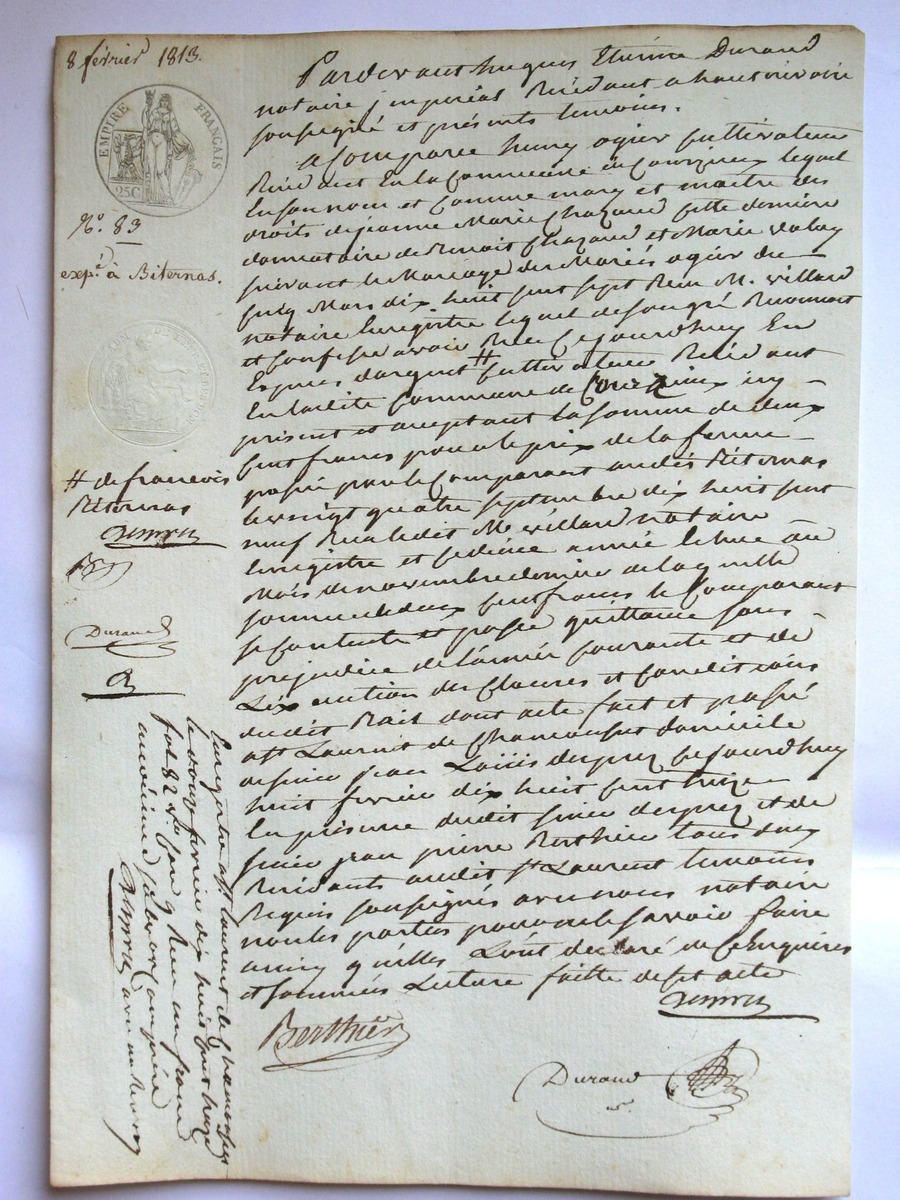 8 février 1813.
EMPIRE FRANÇAIS
25C
N.° 83
exp.é à Biternas.
# de francois
Biternas
Durand
Pardevant hugues Etienne Durand
notaire jmperial Residant a hauterivoire
soussigné et présents temoins.
a Comparu henry ogier Cultivateur
Residant En la Commune de Courzieux lequel
En son nom et Comme mary et maitre des
droits de jeanne Marie Chazaud fille derniere
donnataire de Benoit Chazaud et Marie
suivant le Mariage des Mariés ogier du
Cinq Mars dix huit Cent Sept Recu M. Villard
notaire Enregistré lequel de son gré Reconnoit
et Confesse avoir Recu Cejourdhuy En
Especes dargent # Cultivateur Residant
En laditte Commune de Courzieux icy
présent et aceptant la somme de deux
Cent francs pour le prix de la ferme
passée par le Comparant audit Biternas
le vingt quatre Septembre dix huit Cent
neuf Recu ledit Me Villard notaire
Enregistré et pour année Echue au
Mois de novembre dernier de laquelle
somme de deux Cent francs le Comparant
se Contente et passe quittance sans
prejudice de l'année Courante et de
L'Exécution des Clauses et Conditions
dudit Bail dont acte fait et passé
a St Laurent de Chamousset domicile
de sieur jean Louis Cejourdhuy
huit fevrier dix huit Cent treize
En présence dudit sieur et de
sieur jean pierre Berthier tous deux
Residants audit St Laurent temoins
Requis soussignés avec nous notaire
non les parties pour ne le savoir faire
ainsy qu'elles L'ont declaré de Ce Enquises
et sommées Lecture faitte de Cet acte
Berthier
Durand
Enregistré a St laurent de Chamousset
le onze fevrier dix huit Cent treize
fol 82 Recu un franc